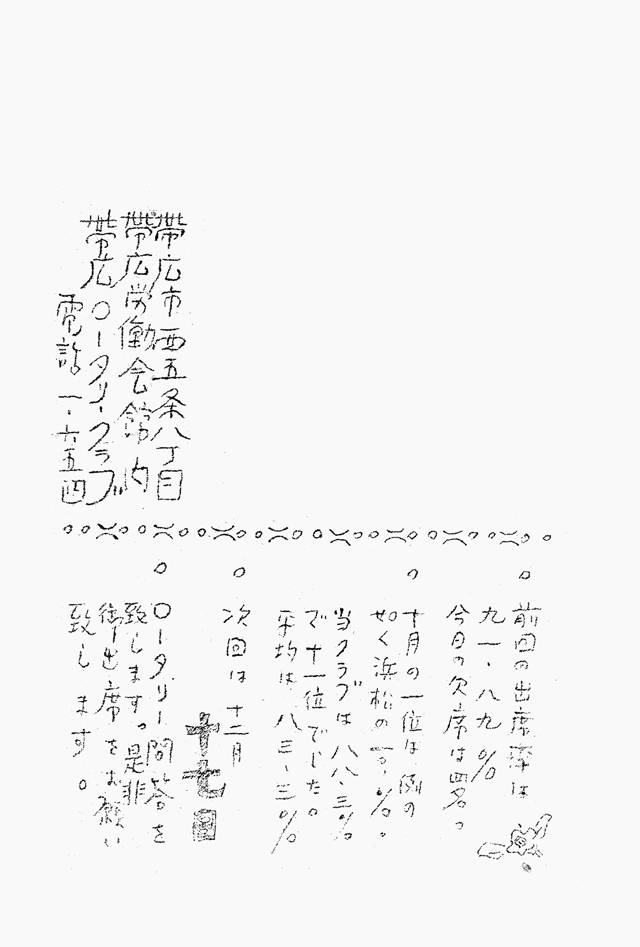 帯広市西五条八丁目
帯広労働会館内
帯広ロータリークラブ
電話 一・六五四
前回の出席率は
九一・八九%
今日の欠席は四名。
十月の一位は例の
如く浜松の一〇〇%。
当クラブは八八・三%
で十一位でした。
平均は八三・三〇%
次回は十二月
十七日
ロータリー問答を
致します。是非
御出席をお願い
致します。